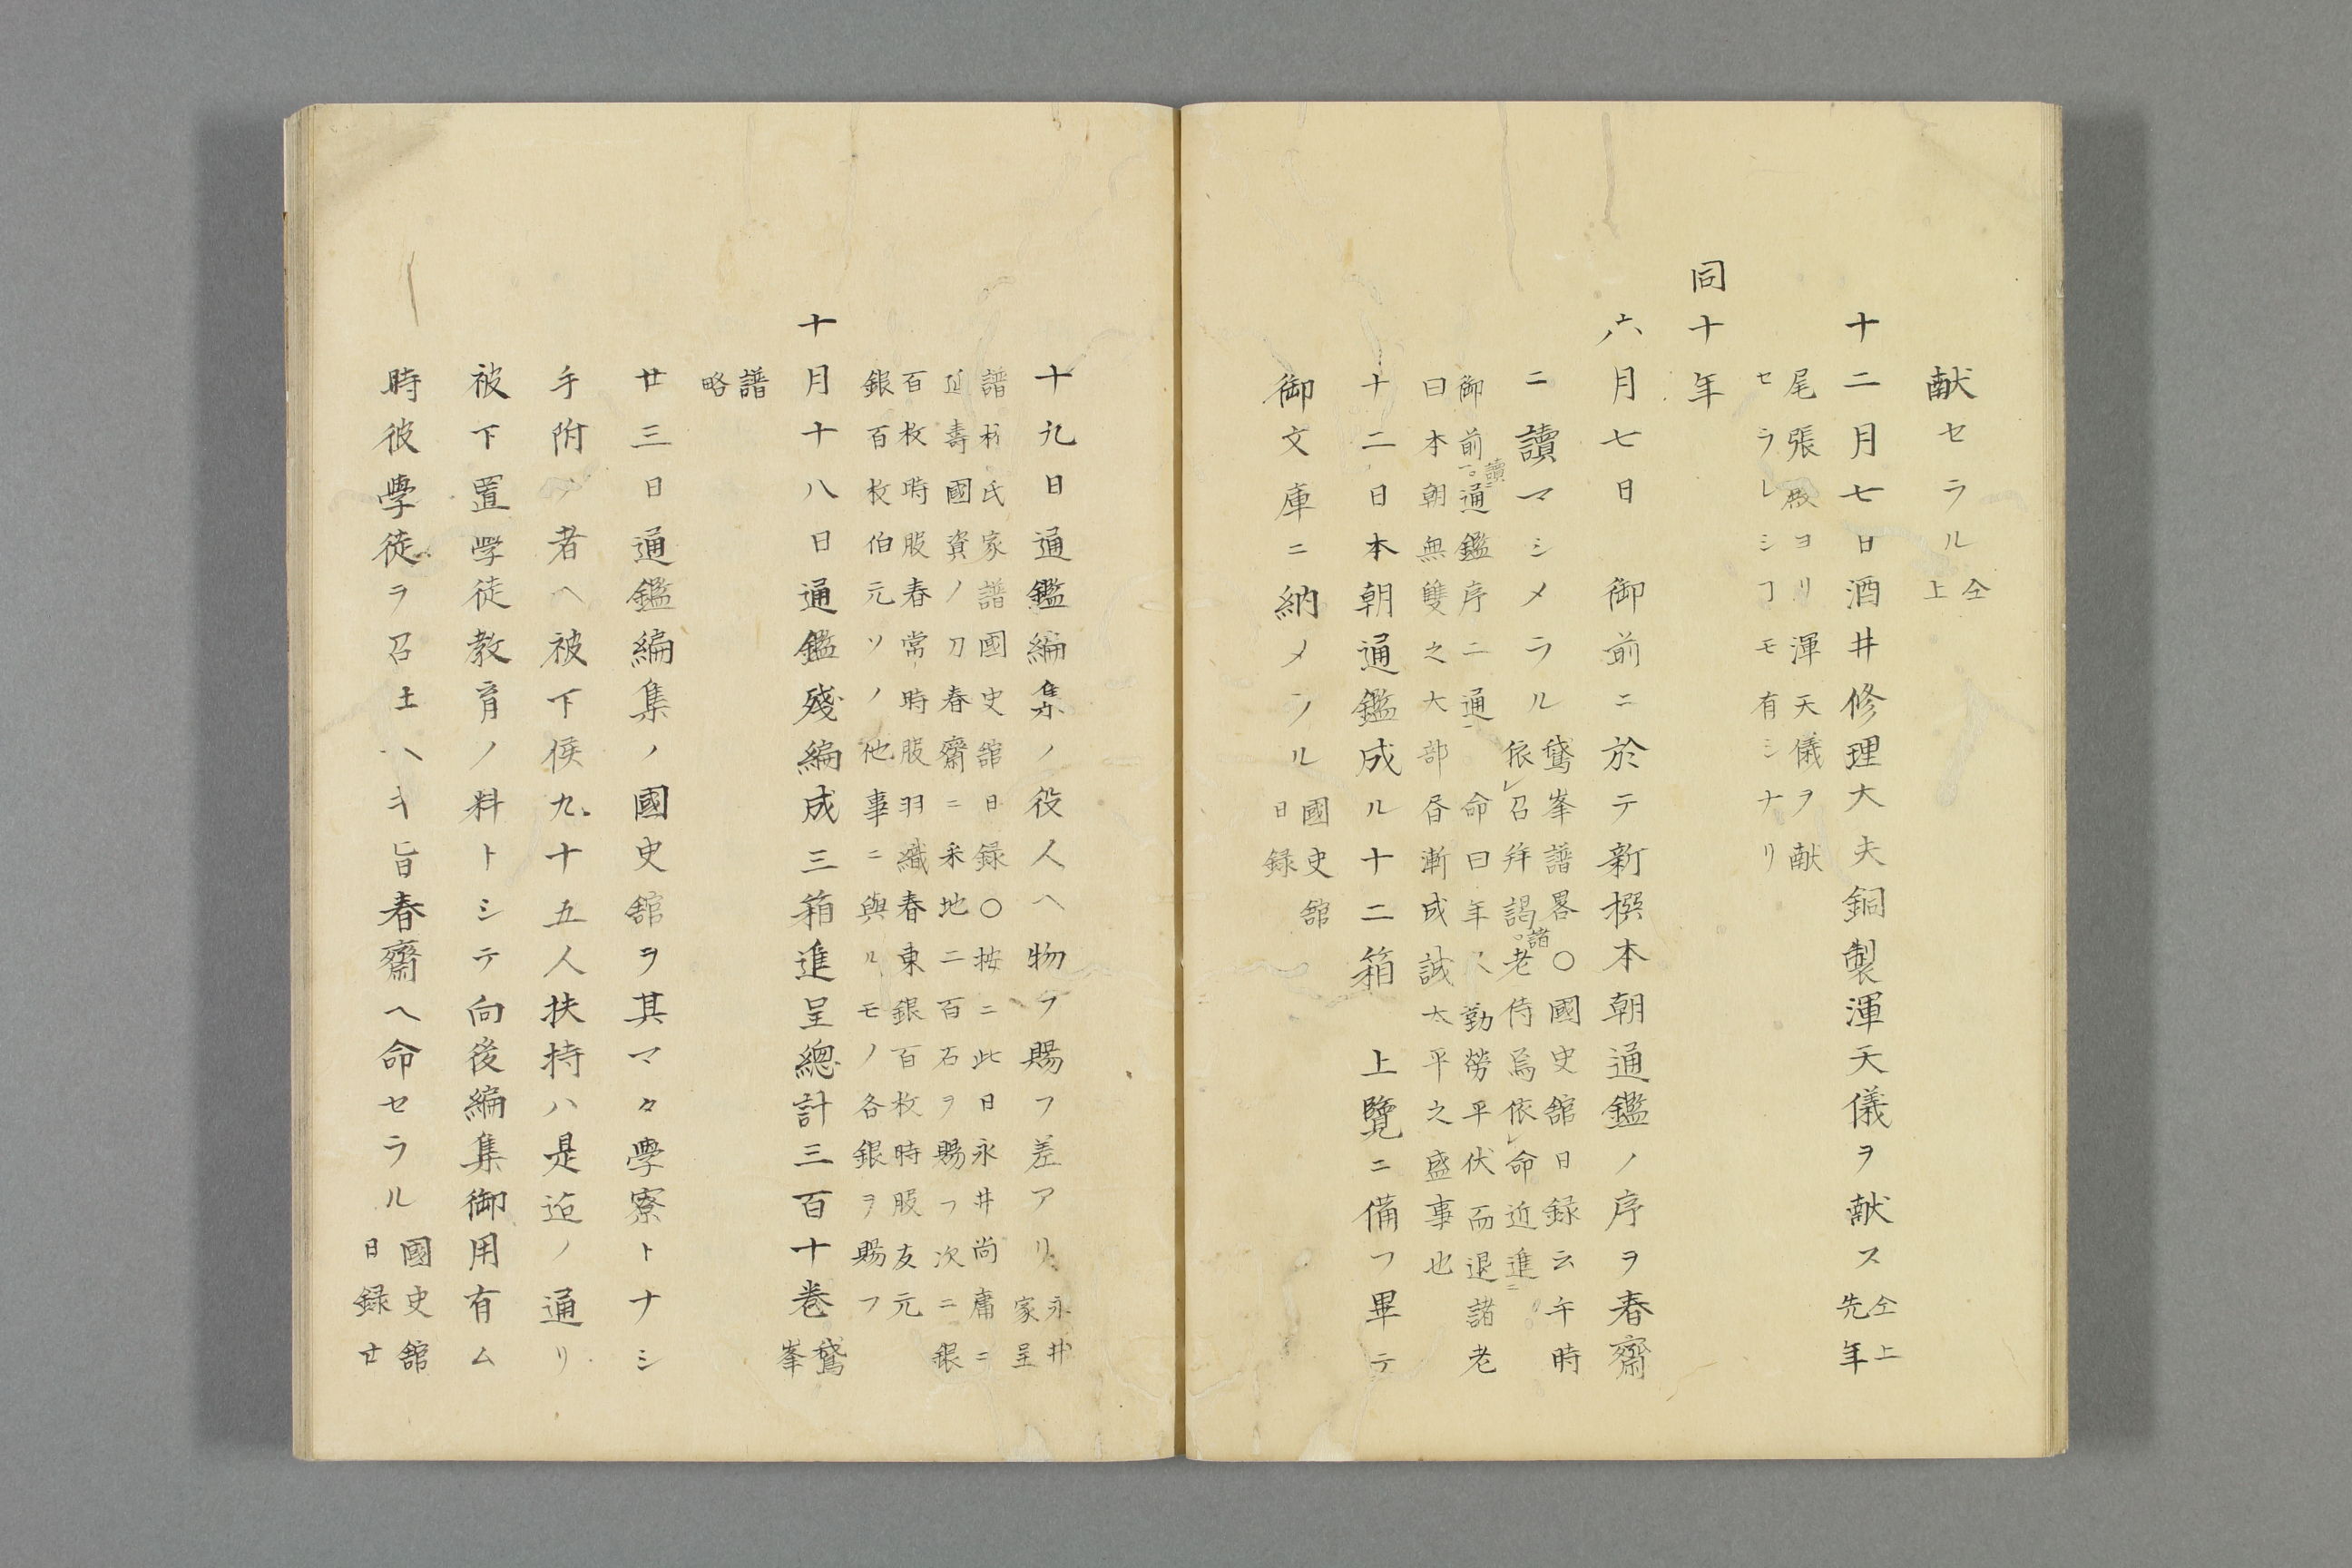 献セラル仝上
十二月七日酒井修理大夫銅製渾天儀ヲ献ス仝上先年
尾張殿ヨリ渾天儀ヲ献
セラレシヿモ有シナリ
同十年
六月七日　御前ニ於テ新撰本朝通鑑ノ序ヲ春齋
ニ讀マシメラル鵞峯譜畧○國史舘日録云午時
依召拜謁諸老侍焉依命近進
御前讀通鑑序二通　命曰年〻勤勞平伏而退諸老
曰本朝無雙之大部昏漸成誠太平之盛事也
十二日本朝通鑑成ル十二箱　上覽ニ備フ畢テ
御文庫ニ納メラル國史舘日録
十九日通鑑編集ノ役人ヘ物ヲ賜フ差アリ永井家呈
譜林氏家譜國史舘日録○按ニ此日永井尚庸ニ
延壽國資ノ刀春齋ニ釆地二百石ヲ賜フ次ニ銀
百枚時服春常時服羽織春東銀百枚時服友元
銀百枚伯元ソノ他事ニ與ルモノ各銀ヲ賜フ
十月十八日通鑑殘編成三箱進呈總計三百十巻鵞峯
譜略
廿三日通鑑編集ノ國史舘ヲ其マヽ學寮トナシ
手附ノ者ヘ被下候九十五人扶持ハ是迠ノ通リ
被下置學徒教育ノ料トシテ向後編集御用有ム
時彼學徒ヲ召士ヘキ旨春齋ヘ命セラル國史舘日録廿